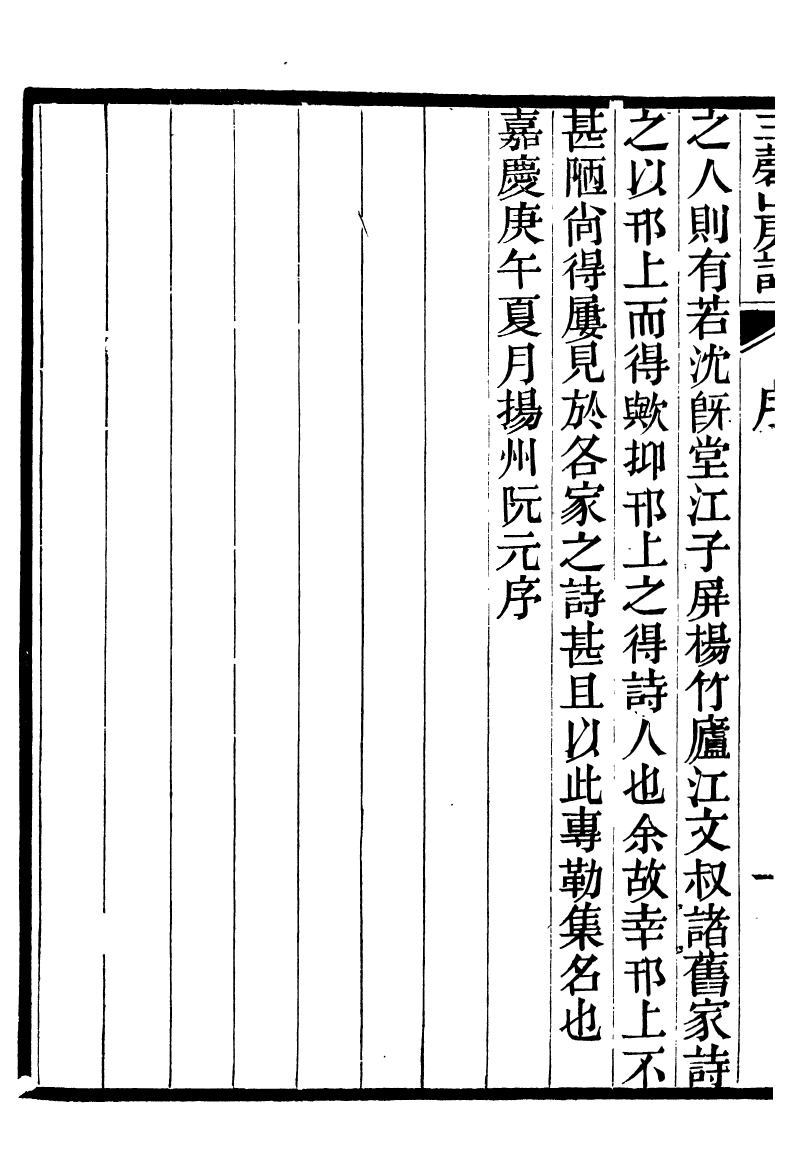 三磬山房詩
序
一
之人則有若沈旣堂江子屏楊竹廬江文叔諸舊家詩
之以邗上而得歟抑邗上之得詩人也余故幸邗上不
甚陋尙得屢見於各家之詩甚且以此專勒集名也
嘉慶庚午夏月揚州阮元序